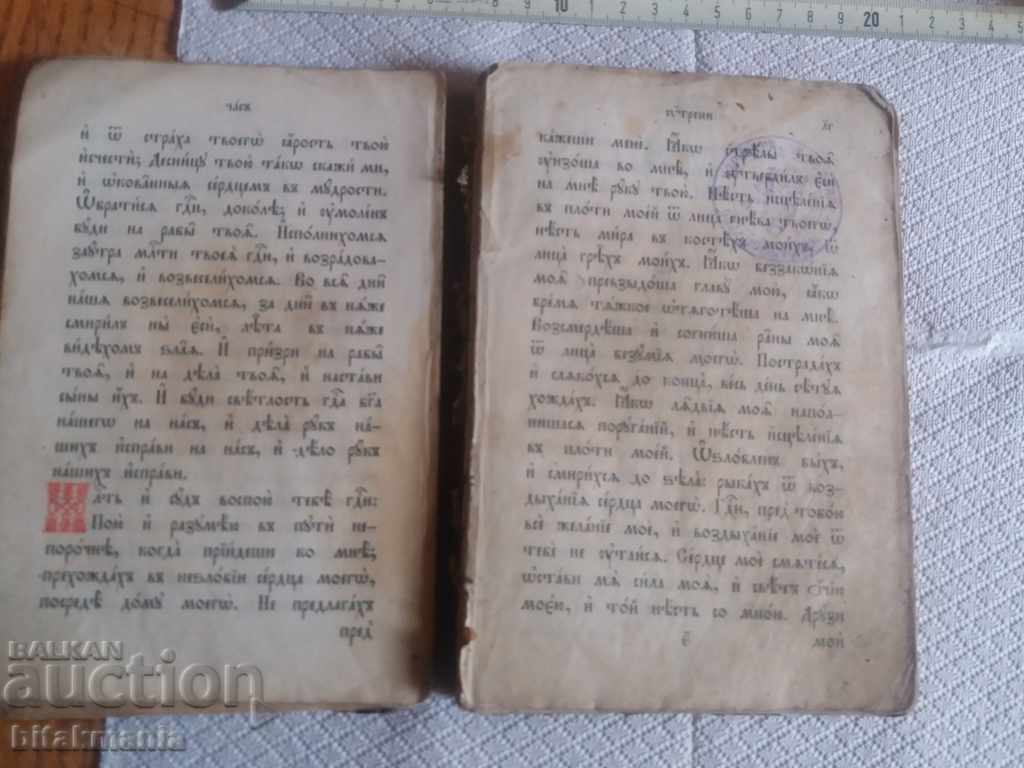 часъ
и҆ ѿ стра́ха твоегѡ̀ ꙗ҆́рость твою̀
и҆счестѝ; Десни́цу твою̀ та́кѡ скажи́ ми,
и҆ ѡ҆кова̑нныѧ се́рдцемъ въ мꙋ́дрости.
Ѡ҆брати́сѧ гдⷭ҇и, доко́лѣ; и҆ ᲂу҆моле́нъ
бꙋ́ди на рабы̑ твоѧ̑. И҆спо́лнихомсѧ
заꙋ́тра млⷭ҇ти твоеѧ̀ гдⷭ҇и, и҆ возра́дова-
хомсѧ, и҆ возвесели́хомсѧ. Во всѧ̑ дни̑
на́шѧ возвесели́хомсѧ, за дни̑ въ нѧ́же
смири́лъ ны̀ є҆сѝ, лѣ̑та въ нѧ́же
ви́дѣхомъ ѕла̑ѧ. И҆ при́зри на рабы̑
твоѧ̑, и҆ на дѣла̀ твоѧ̑, и҆ наста́ви
сы́ны и҆́хъ. И҆ бꙋ́ди свѣ́тлость гдⷭ҇а бг҃а
на́шегѡ на на́съ, и҆ дѣла̀ рꙋ́къ на́-
шихъ и҆спра́ви на на́съ, и҆ дѣ́ло рꙋ́къ
на́шихъ и҆спра́ви.
Млⷭ҇ть и҆ сꙋ́дъ воспою̀ тебѣ̀ гдⷭ҇и:
Пою̀ и҆ разꙋмѣ́ю въ пꙋтѝ не-
поро́чнѣ, когда̀ прїи́деши ко мнѣ̀;
прехожда́хъ въ неѕло́бїи се́рдца моегѡ̀,
посредѣ̀ до́мꙋ моегѡ̀. Не предлага́хъ
пред̾
ᲂу҆́трени
ка́жеши менѐ. Ꙗ҆́кѡ стрѣ́лы твоѧ̑
ᲂу҆нзо́ша во мнѣ̀, и҆ ᲂу҆тверди́лъ є҆сѝ
на мнѣ̀ рꙋ́кꙋ твою̀. Нѣ́сть и҆сцѣле́нїѧ
въ пло́ти мое́й ѿ лица̀ гнѣ́ва твоегѡ̀,
нѣ́сть ми́ра въ косте́хъ мои́хъ, ѿ
лица̀ грѣ̑хъ мои́хъ. Ꙗ҆́кѡ беззакѡ́нїѧ
моѧ̑ превзыдо́ша главꙋ̀ мою̀, ꙗ҆́кѡ
бре́мѧ тѧ́жкое ѡ҆тѧготѣ́ша на мнѣ̀.
Возсмердѣ́ша и҆ согни́ша ра̑ны моѧ̑
ѿ лица̀ безꙋ́мїѧ моегѡ̀. Пострада́хъ
и҆ слѧко́хсѧ до конца̀, ве́сь де́нь сѣ́тꙋѧ
хожда́хъ. Ꙗ҆́кѡ лѧ̑двїѧ моѧ̑ напо́л-
нишасѧ порꙋга́нїй, и҆ нѣ́сть и҆сцѣле́нїѧ
въ пло́ти мое́й. Ѡ҆ѕло́бленъ бы́хъ,
и҆ смири́хсѧ до ѕѣла̀: рыка́хъ ѿ воз-
дыха́нїѧ се́рдца моегѡ̀. Гдⷭ҇и, пред̾ тобо́ю
всѐ жела́нїе моѐ, и҆ воздыха́нїе моѐ ѿ
тебѐ не ᲂу҆таи́сѧ. Се́рдце моѐ смѧте́сѧ,
ѡ҆ста́ви мѧ̀ си́ла моѧ̀, и҆ свѣ́тъ ѻ҆́чїю
моє́ю, и҆ то́й нѣ́сть со мно́ю. Дрꙋ́зи
є҃
мой
10
9
20
BALKAN
auction
bitakmania